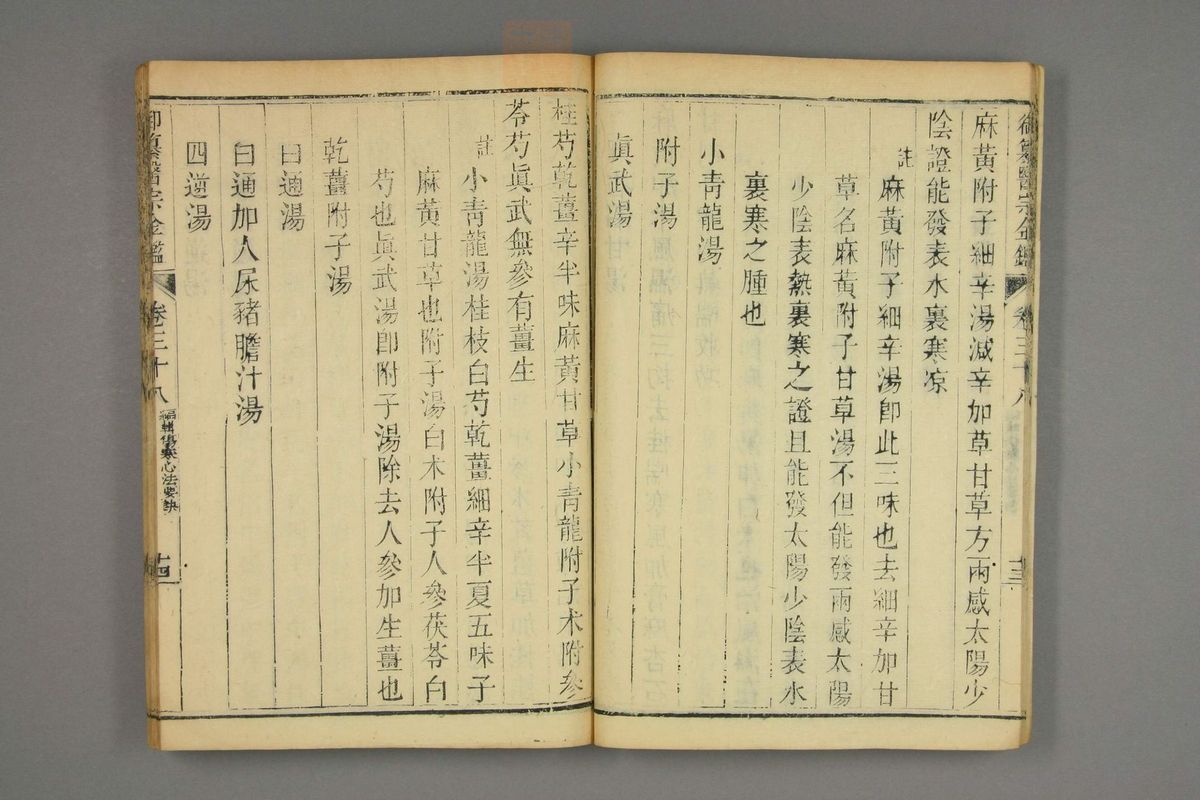 御纂醫宗金鑑 卷三十八 十三
麻黃附子細辛湯減辛加草甘草方兩感太陽少
陰證能發表水裏寒凉
註麻黃附子細辛湯卽此三味也去細辛加甘
草名麻黃附子甘草湯不但能發兩感太陽
少陰表熱裏寒之證且能發太陽少陰表水
裏寒之腫也
小青龍湯
附子湯
眞武湯
桂芍乾薑辛半味麻黃甘草小青龍附子术附參
苓芍眞武無參有薑生
註小青龍湯桂枝白芍乾薑細辛半夏五味子
麻黃甘草也附子湯白术附子人參茯苓白
芍也眞武湯卽附子湯除去人參加生薑也
乾薑附子湯
白通湯
白通加人尿豬膽汁湯
四逆湯
御纂醫宗金鑑 卷三十八 編輯傷寒心法要訣 十四